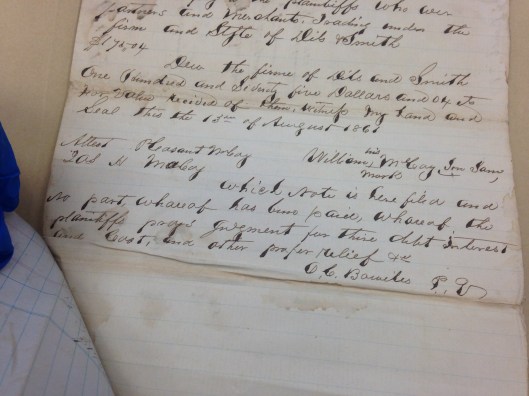 the plaintiffs who were
partners and merchants, trading under the
firm and Style of Dils & Smith
$175.04
Dew the firme of Dils and Smith
One Hundred and Seventy five Dollars and 04 cts
for value recived of them. witness my hand and
Seal this the 15th of August 186
Attest Pleasant McCoy William his McCoy Son Sam,
H McCoy mark
which Note is here filed and
No part, whareof has bine paid, whareof, the
plaintiffs prays Jugement for thire debt Interest
and Cost, and other proper relief &c
P. Q